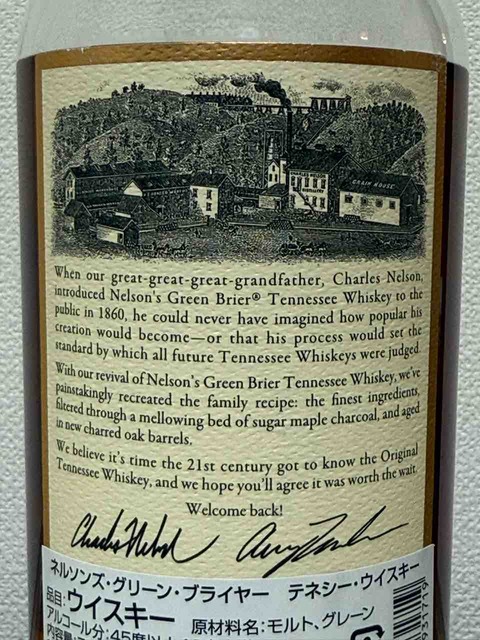 CHARLES NELSON
DISTILLERY
GRAIN HOUSE
When our great-great-great-grandfather, Charles Nelson,
introduced Nelson's Green Brier® Tennessee Whiskey to the
public in 1860, he could never have imagined how popular his
creation would become—or that his process would set the
standard by which all future Tennessee Whiskeys were judged.
With our revival of Nelson's Green Brier Tennessee Whiskey, we've
painstakingly recreated the family recipe: the finest ingredients,
filtered through a mellowing bed of sugar maple charcoal, and aged
in new charred oak barrels.
We believe it's time the 21st century got to know the Original
Tennessee Whiskey, and we hope you'll agree it was worth the wait.
Welcome back!
ネルソンズ・グリーン・ブライヤー テネシー・ウイスキー
品目:ウイスキー 原材料名:モルト、グレーン
アルコール分:45度以上
内容量: